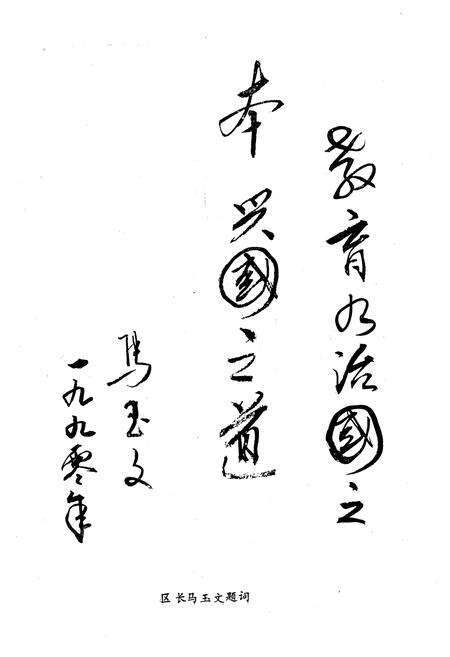 教育乃治國之
本兴國之道
馬玉文
一九九零年
区长马玉文题词